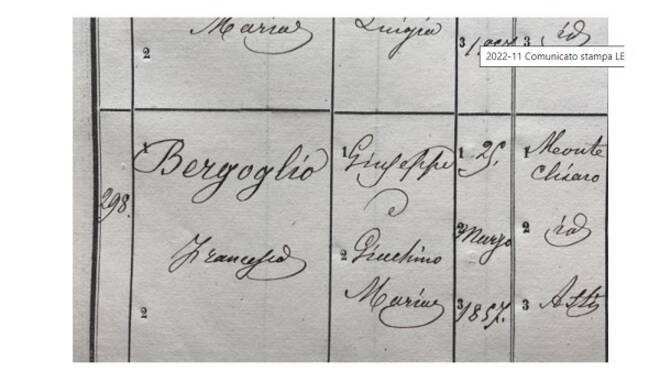 Maria
2
Luigia
3
3 id
2022-11 Comunicato stampa LE
298.
1 Bergoglio
Francesco
2
1 Giuseppe
e
2 Giachino
Maria
1 25.
2 Marzo
3 1857.
1 Monte
chiaro
2 id
3 Asti